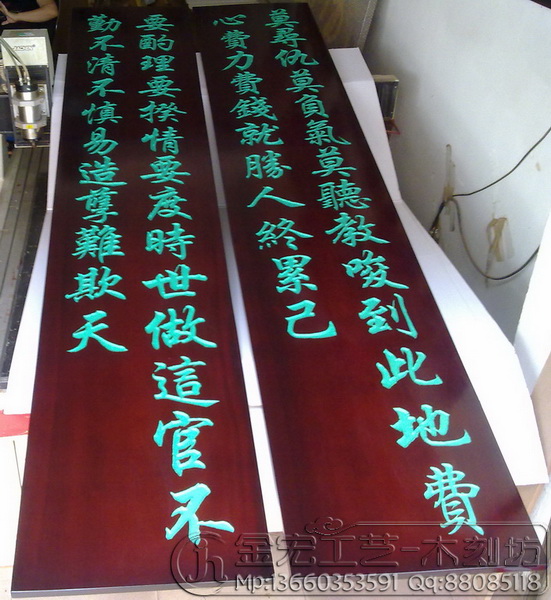 莫尋仇莫負氣莫聽教唆到此地費
心費力費錢就勝人終累己
要酌理要揆情要度時世做這官不
勤不清不慎易造孽難欺天
金宏工艺-木刻坊
Mp:13660353591 Qq:88085118